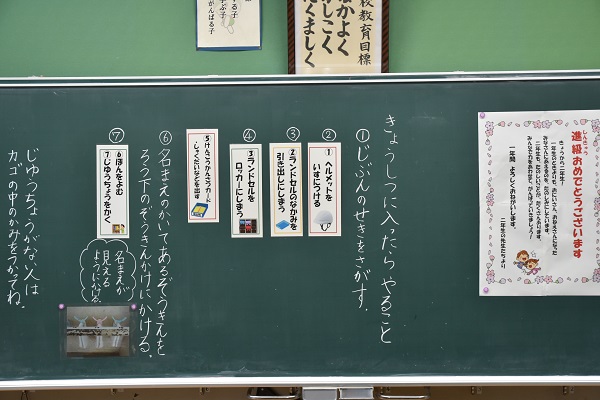 校教育目標
なかよく
かしこく
たくましく
する子
学ぶ子
がんばる子
進級おめでとうございます
しんきゅう
きょうから二年生!
一年間 よろしくおねがいします。
二年生の先生たちより
きょうしつに入ったらやること
①じぶんのせきをさがす。
②
1 ヘルメットを
いすにつける
③
2 ランドセルのなかみを
引き出しにしまう
④
3 ランドセルを
ロッカーにしまう
5 けんこうかんさつカード
・しゅくだいなどを出す
⑥名まえのかいてあるぞうきんを
ろう下のぞうきんかけにかける。
名まえが
見える
ようにかける。
⑦
6 ほんをよむ
7 じゆうちょうをかく
じゆうちょうがない人は
カゴの中のかみをつかってね。